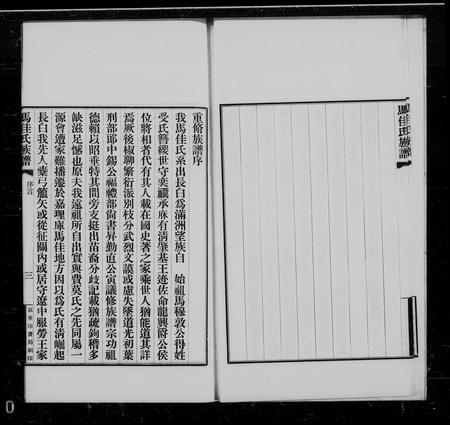 重脩族譜序
我馬佳氏系出長白為滿洲望族自　始祖馬穆敦公得姓
受氏簪纓世守奕禩承庥有清肇基王迹佐命龍興爵公侯
位將相者代有其人載在國史著之家乘世人猶能道其詳
焉厥後椒聊繁衍派別枝分武烈文謨或慮失墜道光初葉
刑部郎中錫公福禮部尚書昇勤直公寅議修族譜宗功祖
德賴以昭垂特其間旁支挺出苗裔分歧記載猶疏鉤稽多
缺滋足憾也原夫我遠祖所自出實與費莫氏之先同屬一
源會遭家難播遷於嘉理庫馬佳地方因以為氏有清崛起
長白我先人櫜弓籠矢或從征關內或居守遼中服勞王家
馬佳氏族譜
序言
三
京華印書局刷印
馬佳氏族譜
0